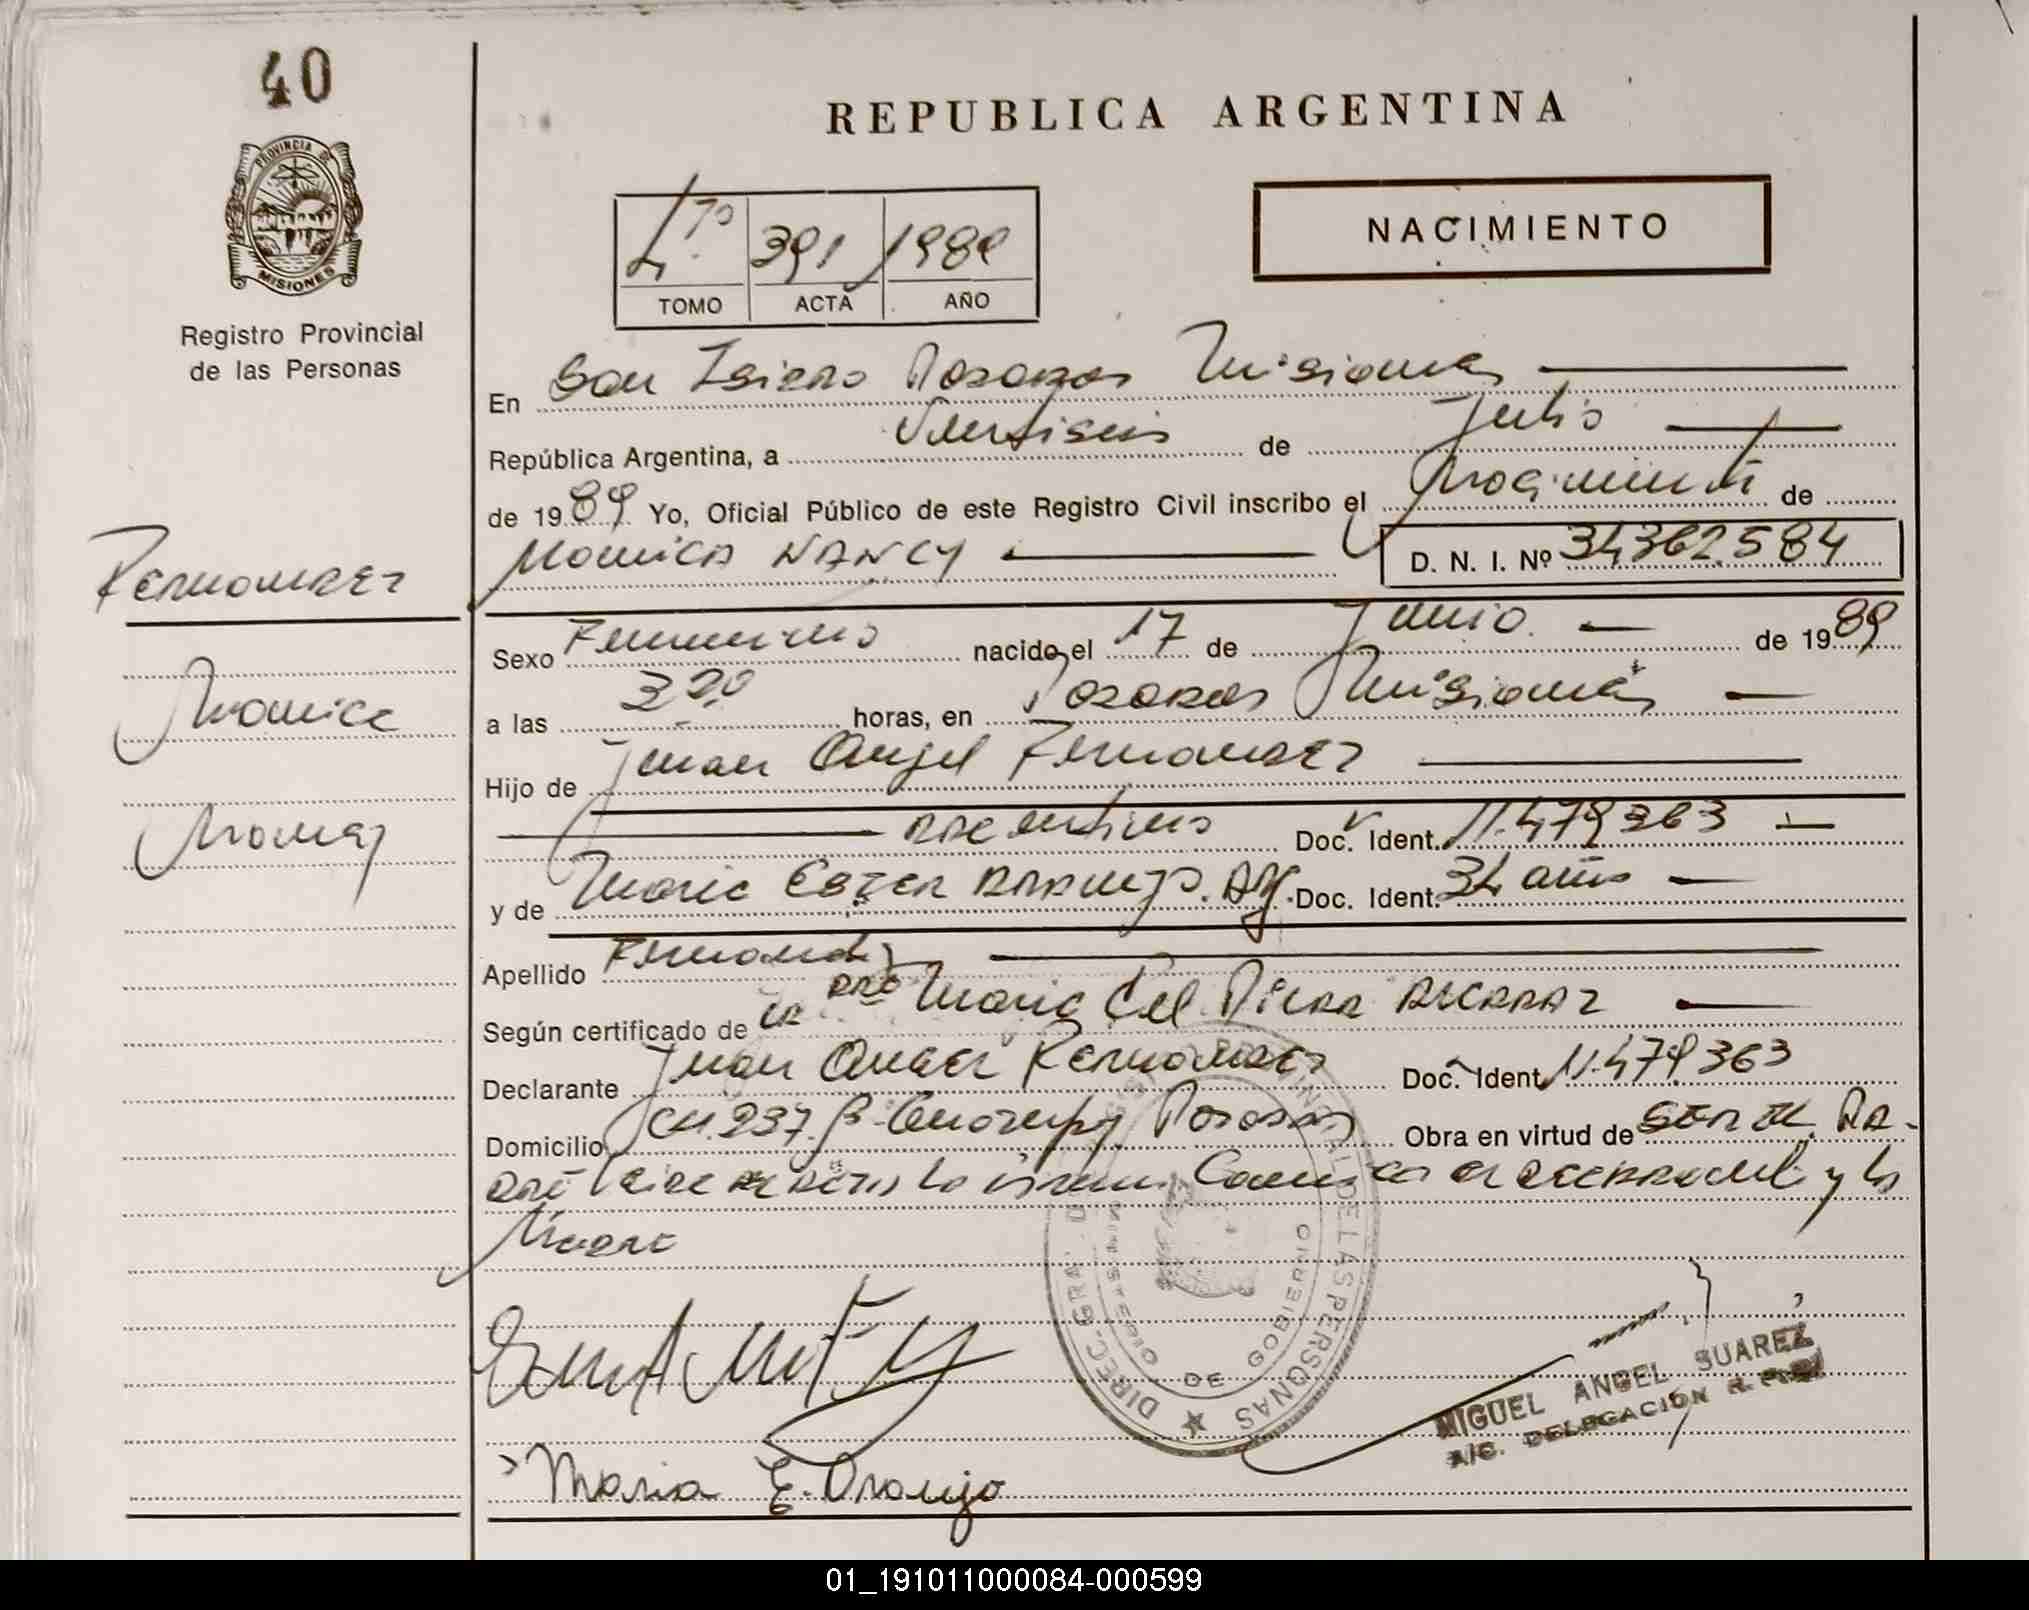 40
REPUBLICA ARGENTINA
PROVINCIA DE
MISIONES
Registro Provincial
de las Personas
NACIMIENTO
4to 391 1989
TOMO ACTA AÑO
En San Isidro Posadas Misiones
República Argentina, a Veintiseis de Julio
de 1989 Yo, Oficial Público de este Registro Civil inscribo el Nacimiento de
MONICA NANCY D. N. I. Nº 34362.584
Fernandez
Monica
Nancy
Sexo Femenino nacido el 17 de Junio de 1989
a las 3 horas, en Posadas Misiones
Hijo de Juan Angel Fernandez
argentino Doc. Ident. 11.479363
y de Maria Ester Araujo. Arg. Doc. Ident. 34 años
Apellido Fernandez
Según certificado de la Maria del Pilar Alcaraz
Declarante Juan Angel Fernandez Doc. Ident. 11.479363
Domicilio CH. 237. Posadas Obra en virtud de ser el Pa-
dre y la
Madre
DIREC. GRAL. PROVINCIAL DE LAS PERSONAS
MINISTERIO DE GOBIERNO
MIGUEL ANGEL SUAREZ
A/C. DELEGACION
Maria E. Araujo
01_191011000084-000599